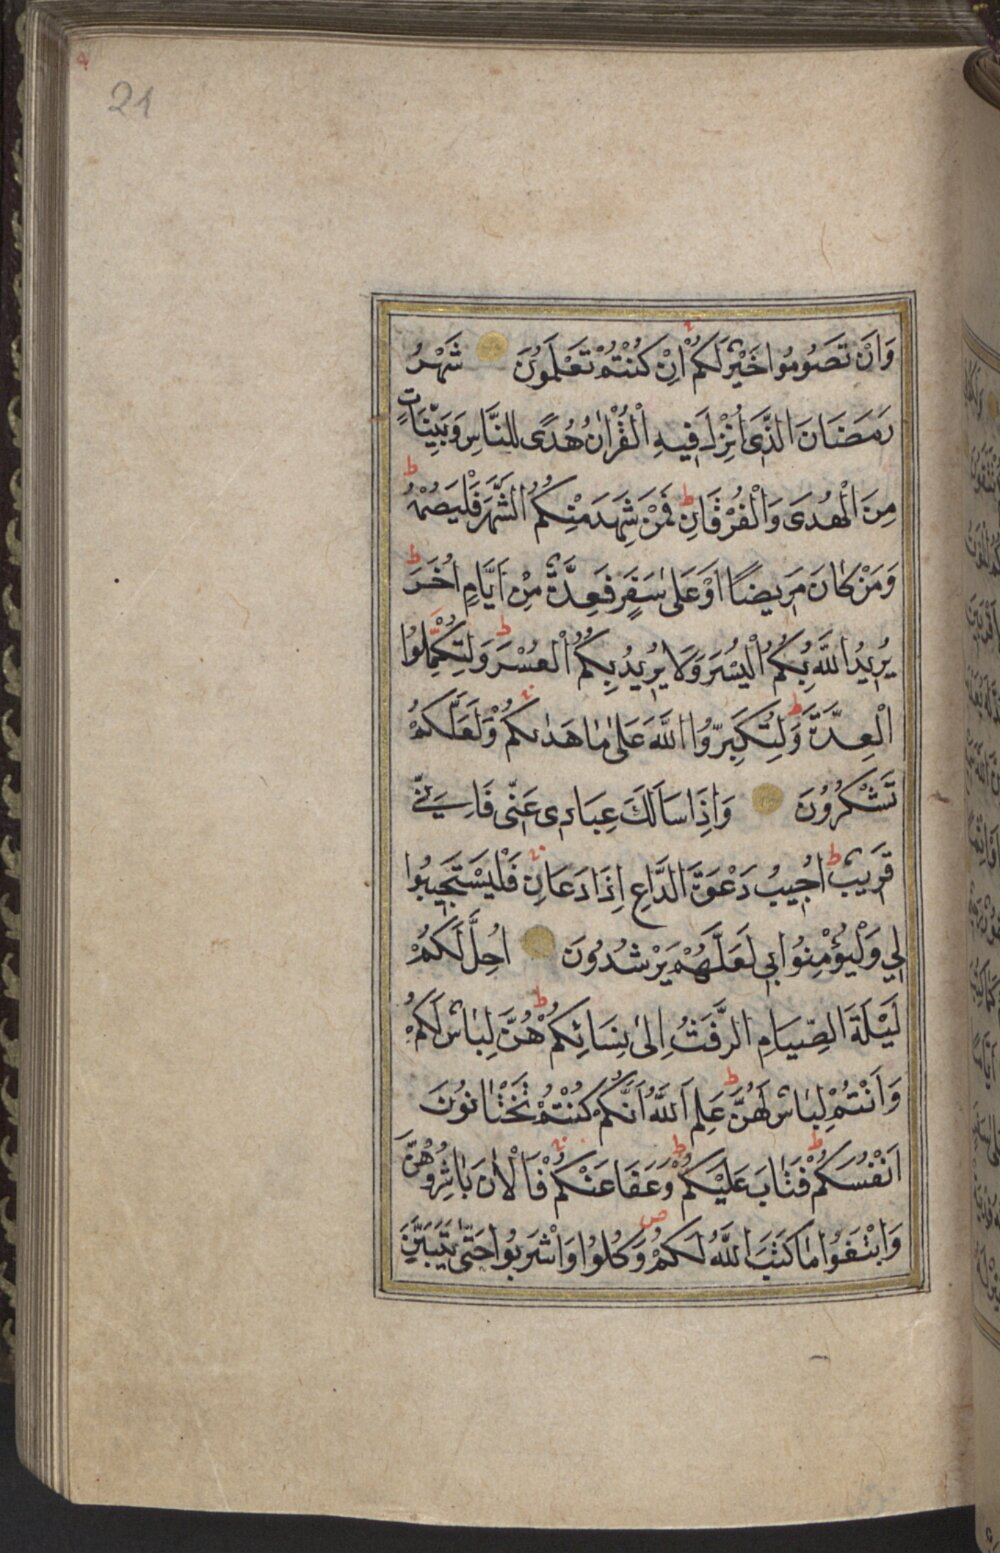 21
وَاَنْ تَصُومُوا خَيْرٌ لَكُمْ اِنْ كُنْتُمْ تَعْلَمُونَ شَهْرُ
رَمَضَانَ الَّذٖى اُنْزِلَ فٖيهِ الْقُرْاٰنُ هُدًى لِلنَّاسِ وَبَيِّنَاتٍ
مِنَ الْهُدٰى وَالْفُرْقَانِ ط فَمَنْ شَهِدَ مِنْكُمُ الشَّهْرَ فَلْيَصُمْهُ ط
وَمَنْ كَانَ مَرٖيضًا اَوْ عَلٰى سَفَرٍ فَعِدَّةٌ مِنْ اَيَّامٍ اُخَرَ ط
يُرٖيدُ اللّٰهُ بِكُمُ الْيُسْرَ وَلَا يُرٖيدُ بِكُمُ الْعُسْرَ ط وَلِتُكْمِلُوا
الْعِدَّةَ وَلِتُكَبِّرُوا اللّٰهَ عَلٰى مَا هَدٰيكُمْ وَلَعَلَّكُمْ
تَشْكُرُونَ وَاِذَا سَاَلَكَ عِبَادٖى عَنّٖى فَاِنّٖى
قَرٖيبٌ ط اُجٖيبُ دَعْوَةَ الدَّاعِ اِذَا دَعَانِ فَلْيَسْتَجٖيبُوا
لٖى وَلْيُؤْمِنُوا بٖى لَعَلَّهُمْ يَرْشُدُونَ اُحِلَّ لَكُمْ
لَيْلَةَ الصِّيَامِ الرَّفَثُ اِلٰى نِسَائِكُمْ ط هُنَّ لِبَاسٌ لَكُمْ
وَاَنْتُمْ لِبَاسٌ لَهُنَّ ط عَلِمَ اللّٰهُ اَنَّكُمْ كُنْتُمْ تَخْتَانُونَ
اَنْفُسَكُمْ ط فَتَابَ عَلَيْكُمْ ط وَعَفَا عَنْكُمْ فَالْاٰنَ بَاشِرُوهُنَّ
وَابْتَغُوا مَا كَتَبَ اللّٰهُ لَكُمْ ص وَكُلُوا وَاشْرَبُوا حَتّٰى يَتَبَيَّنَ